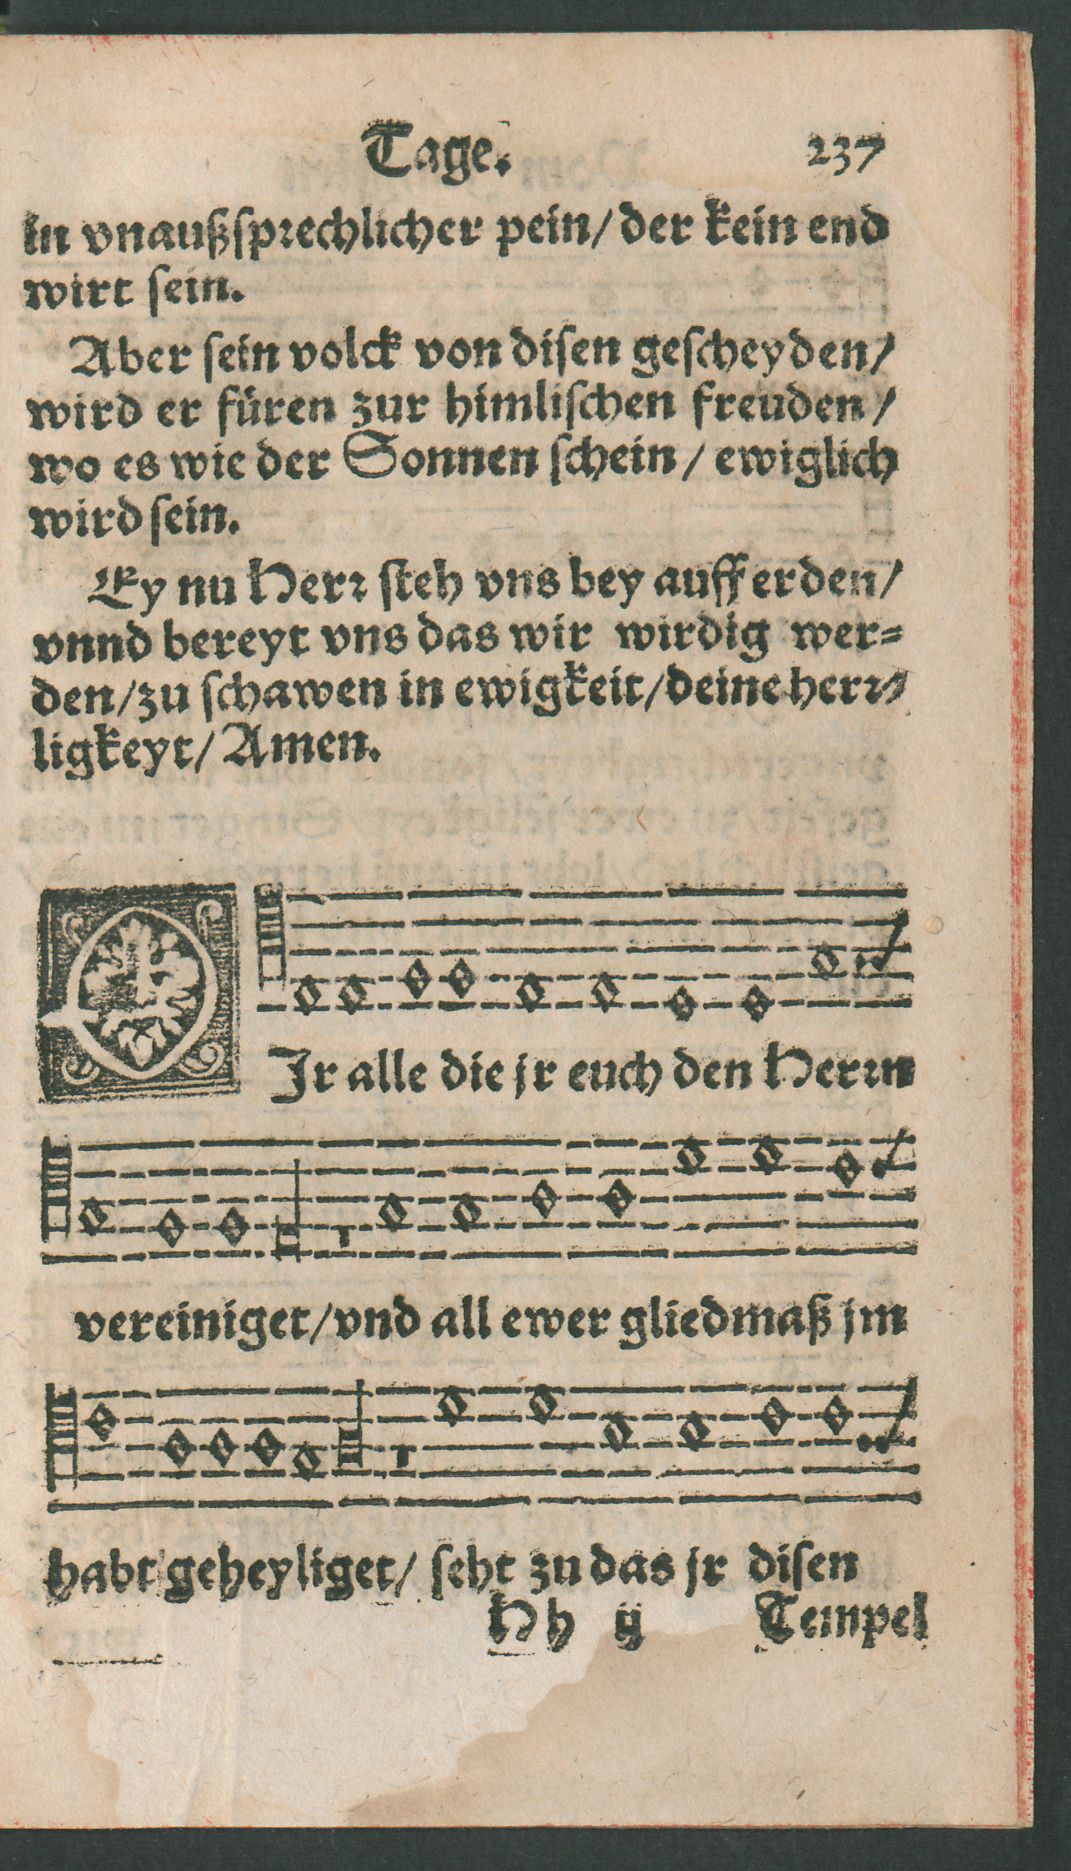 Tage. 237
in vnaußsprechlicher pein/ der kein end
wirt sein.
Aber sein volck von disen gescheyden/
wird er füren zur himlischen freuden/
wo es wie der Sonnen schein/ ewiglich
wird sein.
Ey nu Herr steh vns bey auff erden/
vnnd bereyt vns das wir wirdig wer=
den/ zu schawen in ewigkeit/ deine herr=
ligkeyt/ Amen.
O Jr alle die jr euch den Herrn
vereiniget/ vnd all ewer gliedmaß jm
habt geheyliget/ seht zu das jr disen
Hh ij Tempel